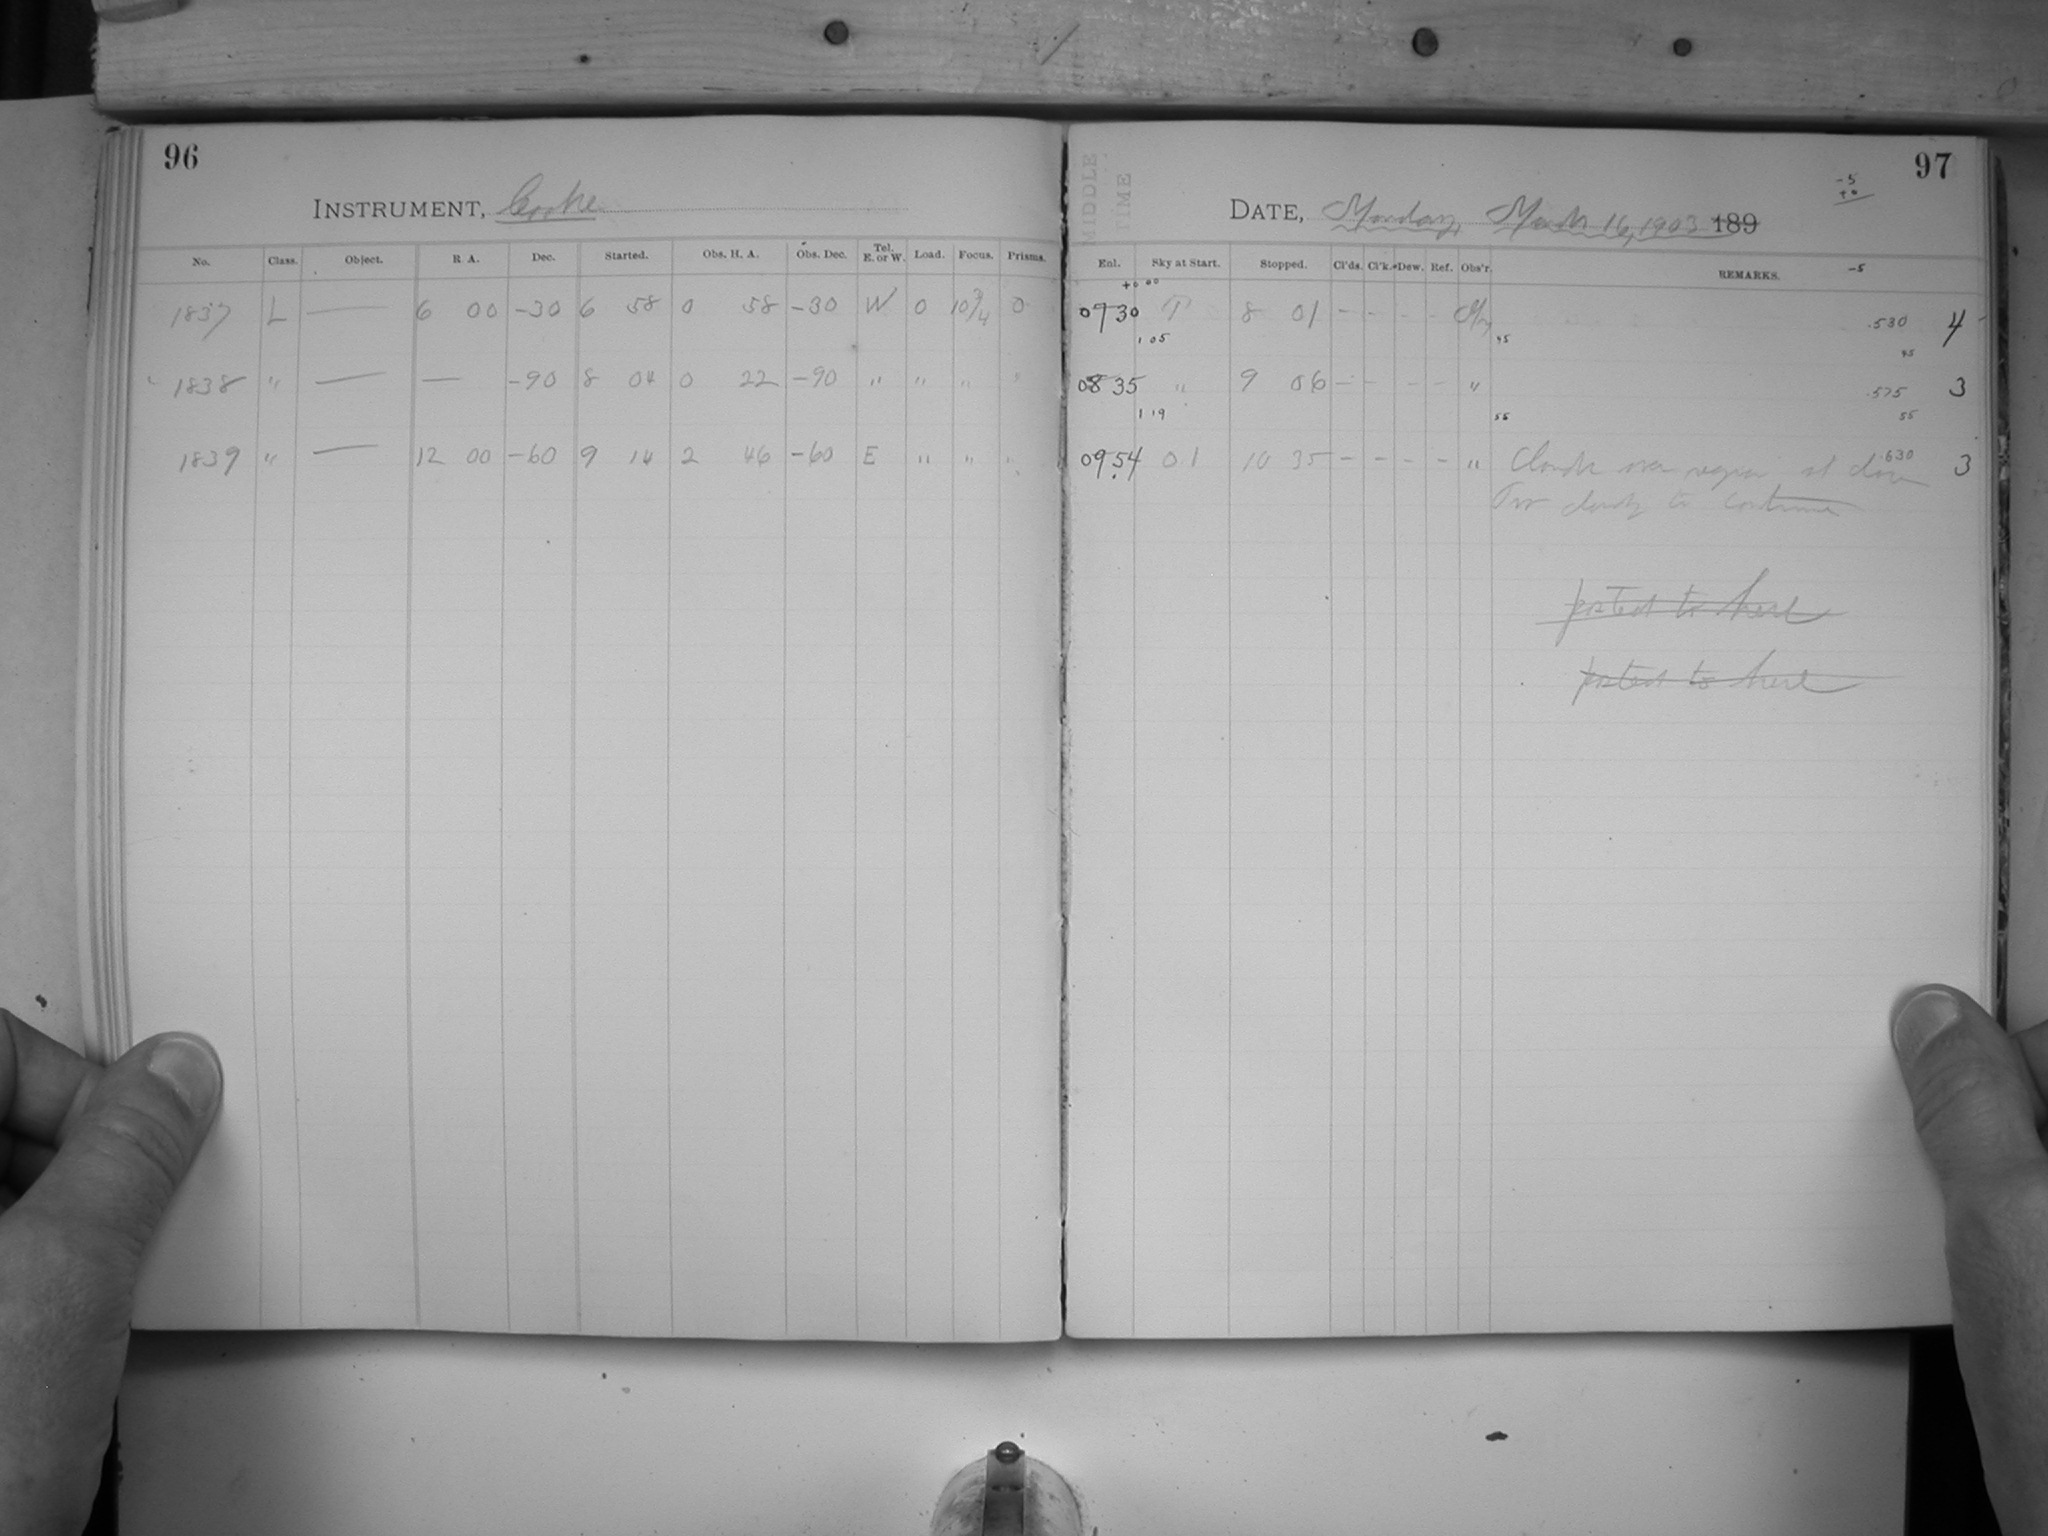 96
INSTRUMENT, Cooke
No. Class. Object. R. A. Dec. Started. Obs. H. A. Obs. Dec. Tel. E. or W. Load. Focus. Prisms.
1837 L — 6 00 -30 6 58 0 58 -30 W 0 10 3/4 0
1838 " — — -90 8 04 0 22 -90 " " " "
1839 " — 12 00 -60 9 14 2 46 -60 E " " "
97
MIDDLE TIME
-5
+0
DATE, Monday, March 16, 1903 189
Enl. Sky at Start. Stopped. Cl'ds. Cl'k. Dew. Ref. Obs'r. REMARKS. -5
+0 00
07 30 8 01 - - - - .530 4
1 05 45 45
08 35 " 9 06 - - - - " .575 3
1 19 55 55
09.54 01 10 35 - - - - " Clouds over region at close .630 3
Too cloudy to continue
posted to here
posted to here